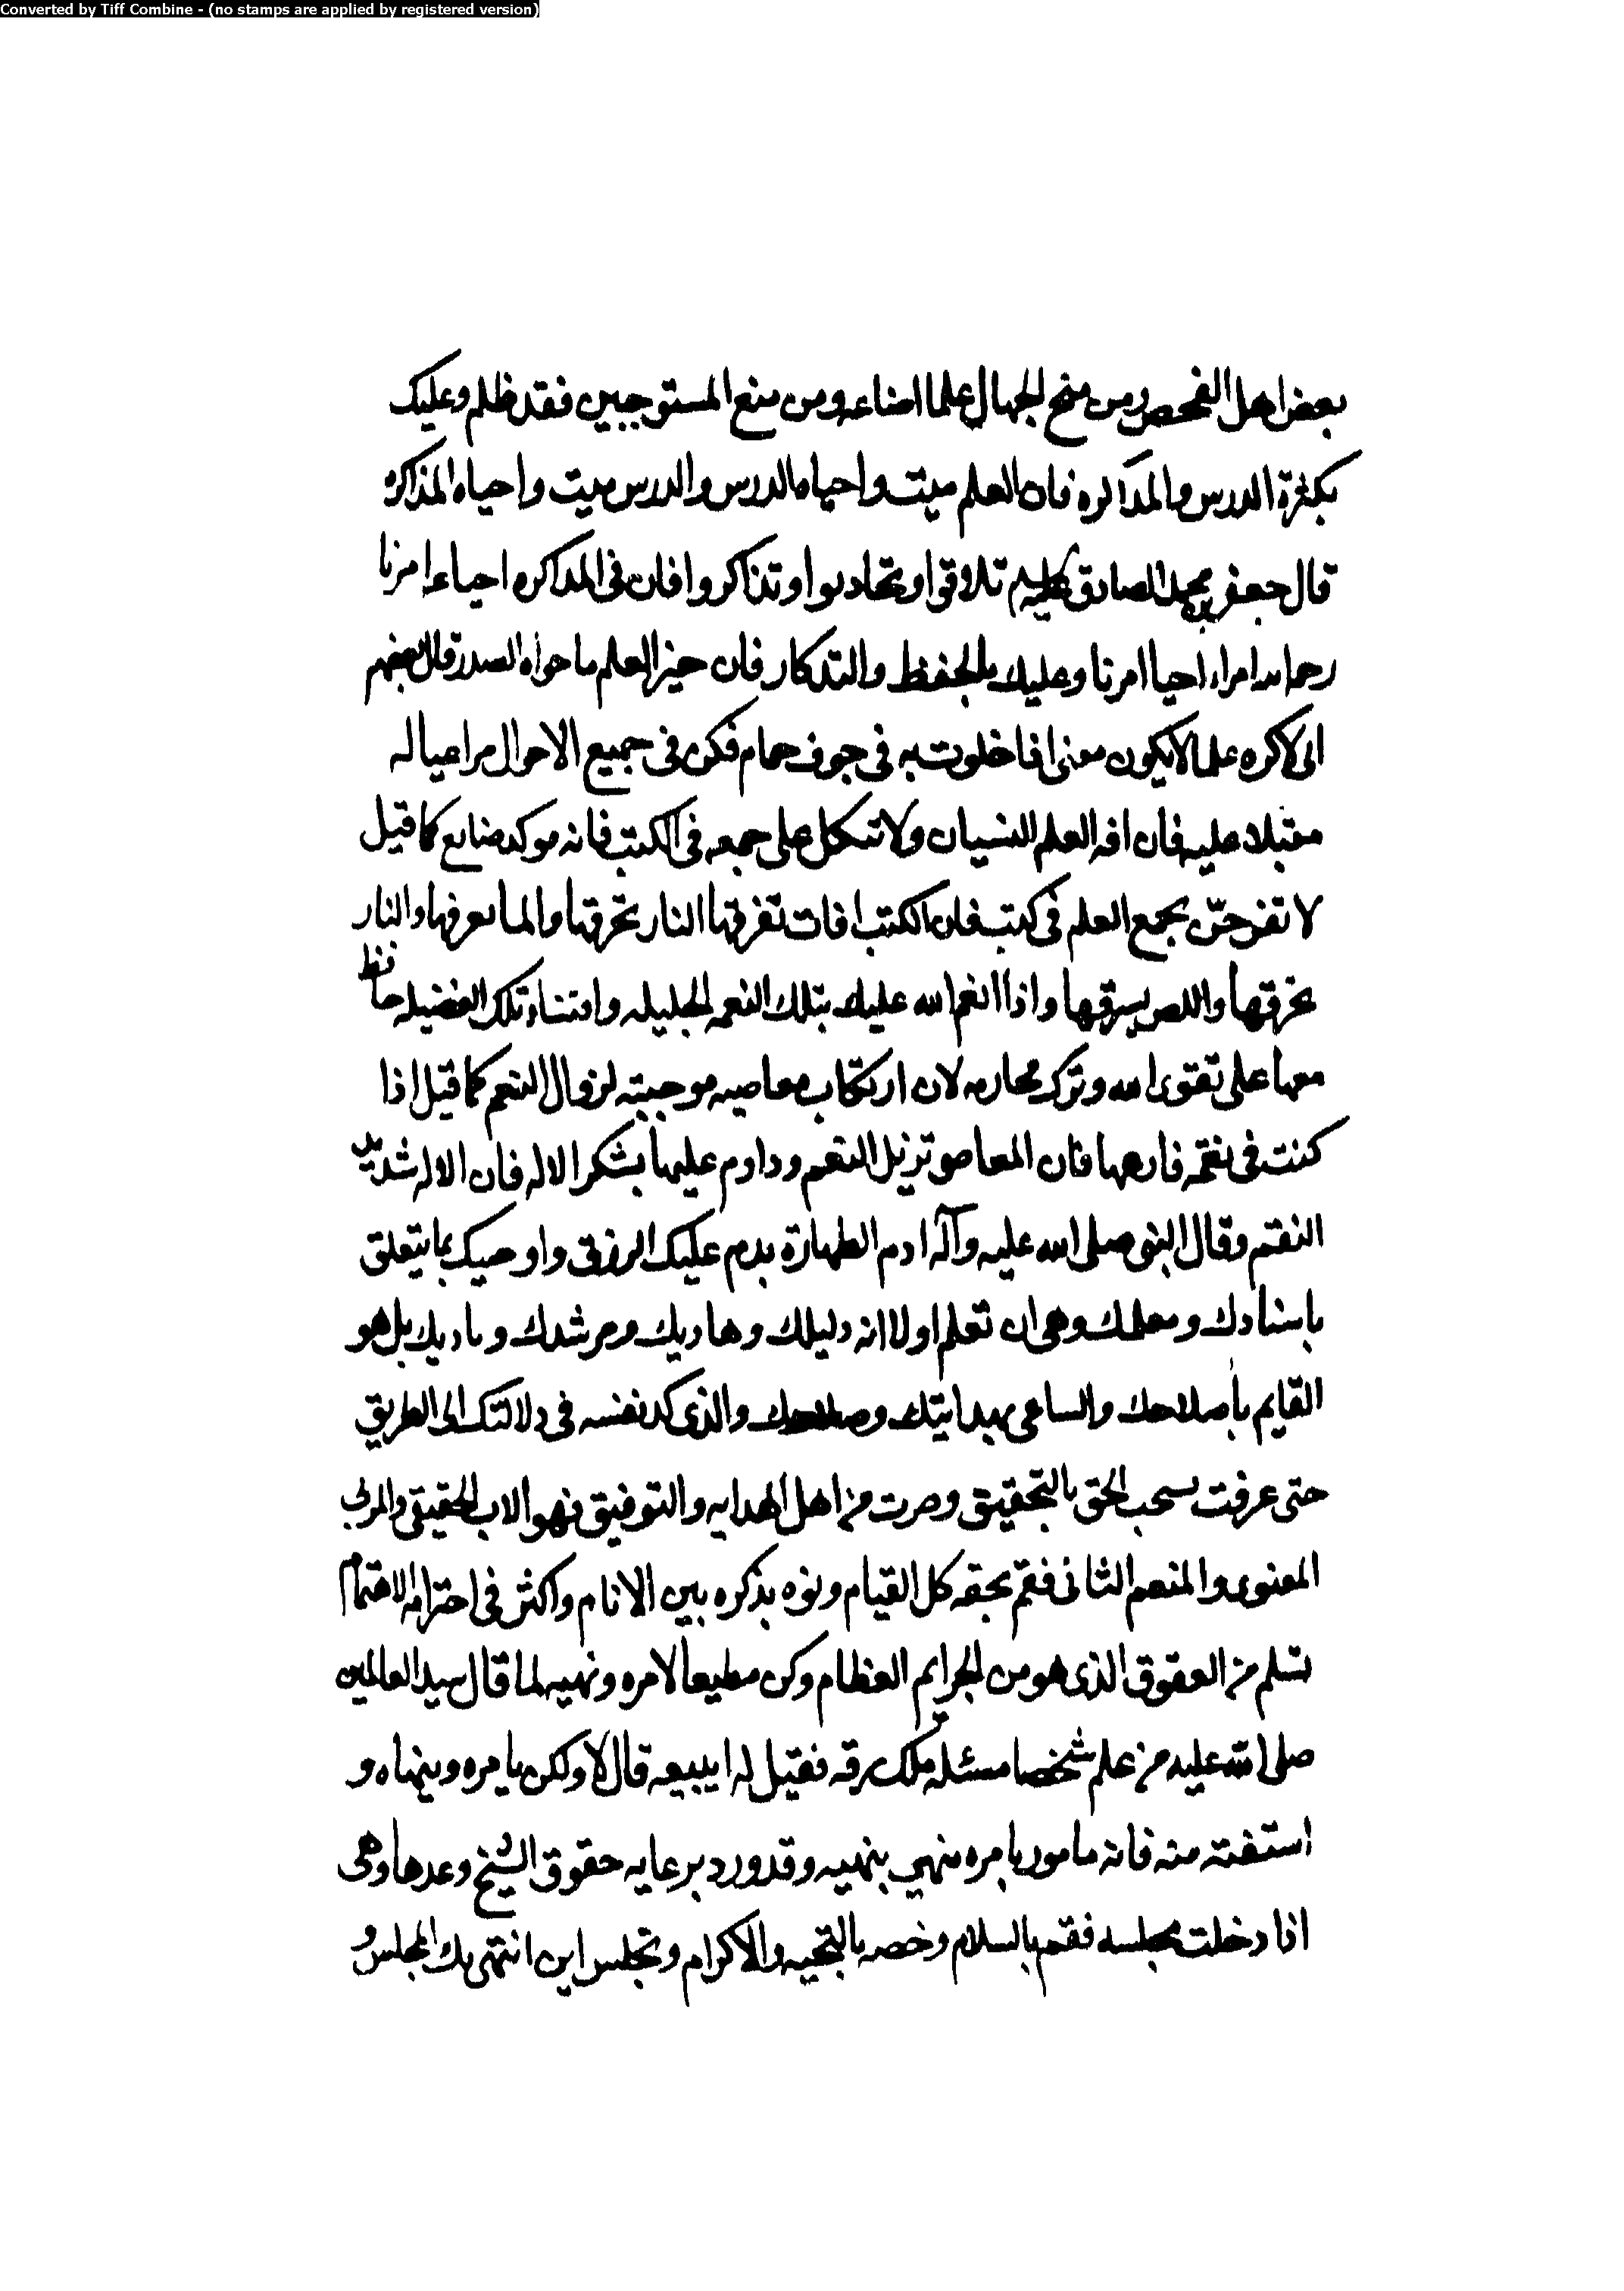 Converted by Tiff Combine - (no stamps are applied by registered version)
بعض اهل الفحص ومن منح الجهال علما اضاعه ومن منع المستوجبين فقد ظلم وعليك
بكثرة الدرس والمذاكره فان العلم ميت واحياه الدرس والدرس ميت واحياه المذاكره
قال جعفر بن محمد الصادق تلاقوا وتحادثوا وتذاكروا فان فى المذاكره احياء امرنا
رحم الله امراء احيا امرنا وعليك بالحفظ والتذكار فان خير العلم ما حواه الصدر قال بعضهم
انى لاكره علما لا يكون معى اذا خلوت به فى جوف حمام فكن فى جميع الاحوال مراعيا له
مقبلا عليه فان افه العلم النسيان ولا تتكل على جمعه فى الكتب فانه موكد ضايع كما قيل
لا تفرحنّ بجمع العلم فى كتب فان للكتب افات تفرقها النار تحرقها والما يغرقها والفار
يخرقها واللص يسرقها واذا انعم الله عليك بتلك النعمه الجليله واقتناء تلك الفضيله حافظ
معها على تقوى الله وترك محارمه لان ارتكاب معاصيه موجبته لزوال النعم كما قيل اذا
كنت فى نعمه فارعها فان المعاصى تزيل النعم وداوم عليها بشكر الاله فان الاله شديد
النقم وقال النبى صلى الله عليه وآله ادم الطهارة يدم عليك الرزق واوصيك بما يتعلق
باستادك ومعلمك وهى ان تعلم اولا انه دليلك وهاديك ومرشدك وباديك بل هو
القايم بأصلاحك والساعى بهدايتك وصلاحك والذى كد نفسه فى دلالتك الى الطريق
حتى عرفت الحق بالتحقيق وصرت من اهل الهدايه والتوفيق فهو الاب الحقيقى والمربى
المعنوى والمنعم الثانى فقم بحقه كل القيام ونوه بذكره بين الانام واكثر فى احترامه الاهتمام
تسلم من العقوق الذى هو من الجرايم العظام وكن مطيعا لامره ونهيه لما قال سيد العالمين
صلى الله عليه من علم شخصا مسئله ملك رقه فقيل له ايبيعه قال لا ولكن يامره وينهاه و
استفته منه فانه مامور بامره منهى بنهيه وقد ورد برعايه حقوق الشيخ وعدها وهى
اذا دخلت مجلسه فقم بالسلام وخصه بالتحيه والاكرام وتجلس اين انتهى بك المجلس و